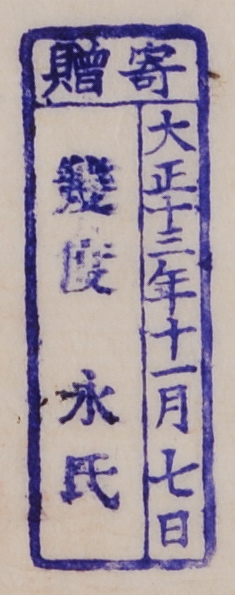 寄贈
大正十三年十一月七日
幾度永氏